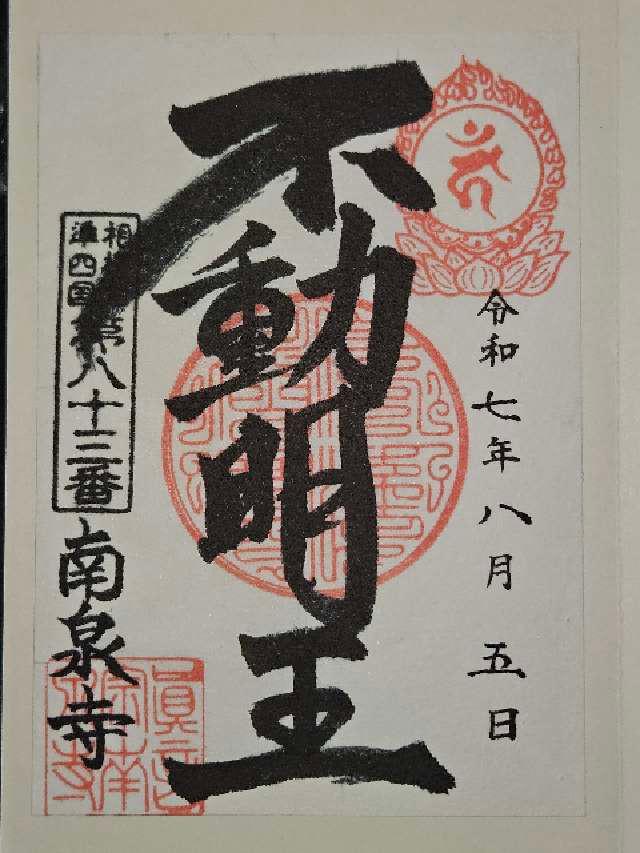 令和七年八月五日
不動明王
相
準四国
第八十三番
南泉寺